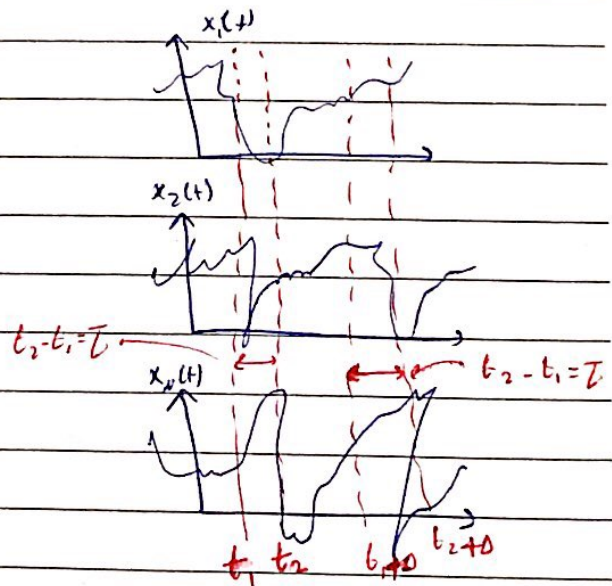 x₁(t)
x₂(t)
t₂-t₁=τ
t₂-t₁=τ
x_N(t)
t₁ t₂ t₁+Δ t₂+Δ